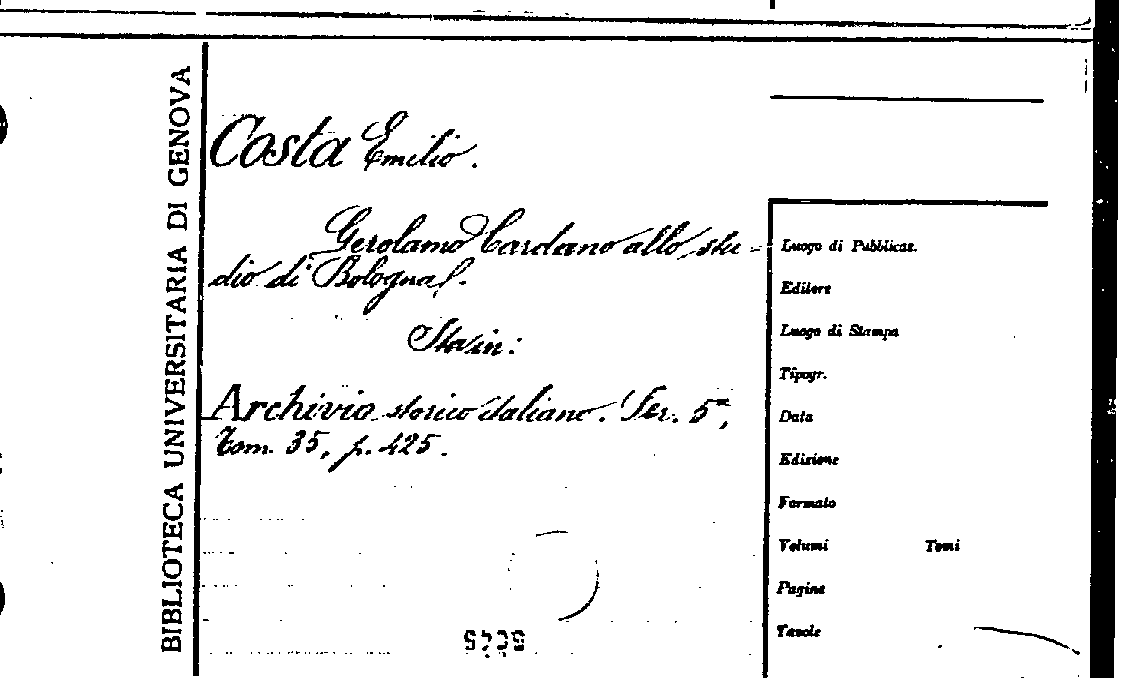 BIBLIOTECA UNIVERSITARIA DI GENOVA
Costa Emilio.
Gerolamo Cardano allo stu-
dio di Bologna.
Sta in:
Archivio storico italiano. Ser. 5ª,
Tom. 35, p. 425.
Luogo di Pubblicaz.
Editore
Luogo di Stampa
Tipogr.
Data
Edizione
Formato
Volumi Tomi
Pagine
Tavole